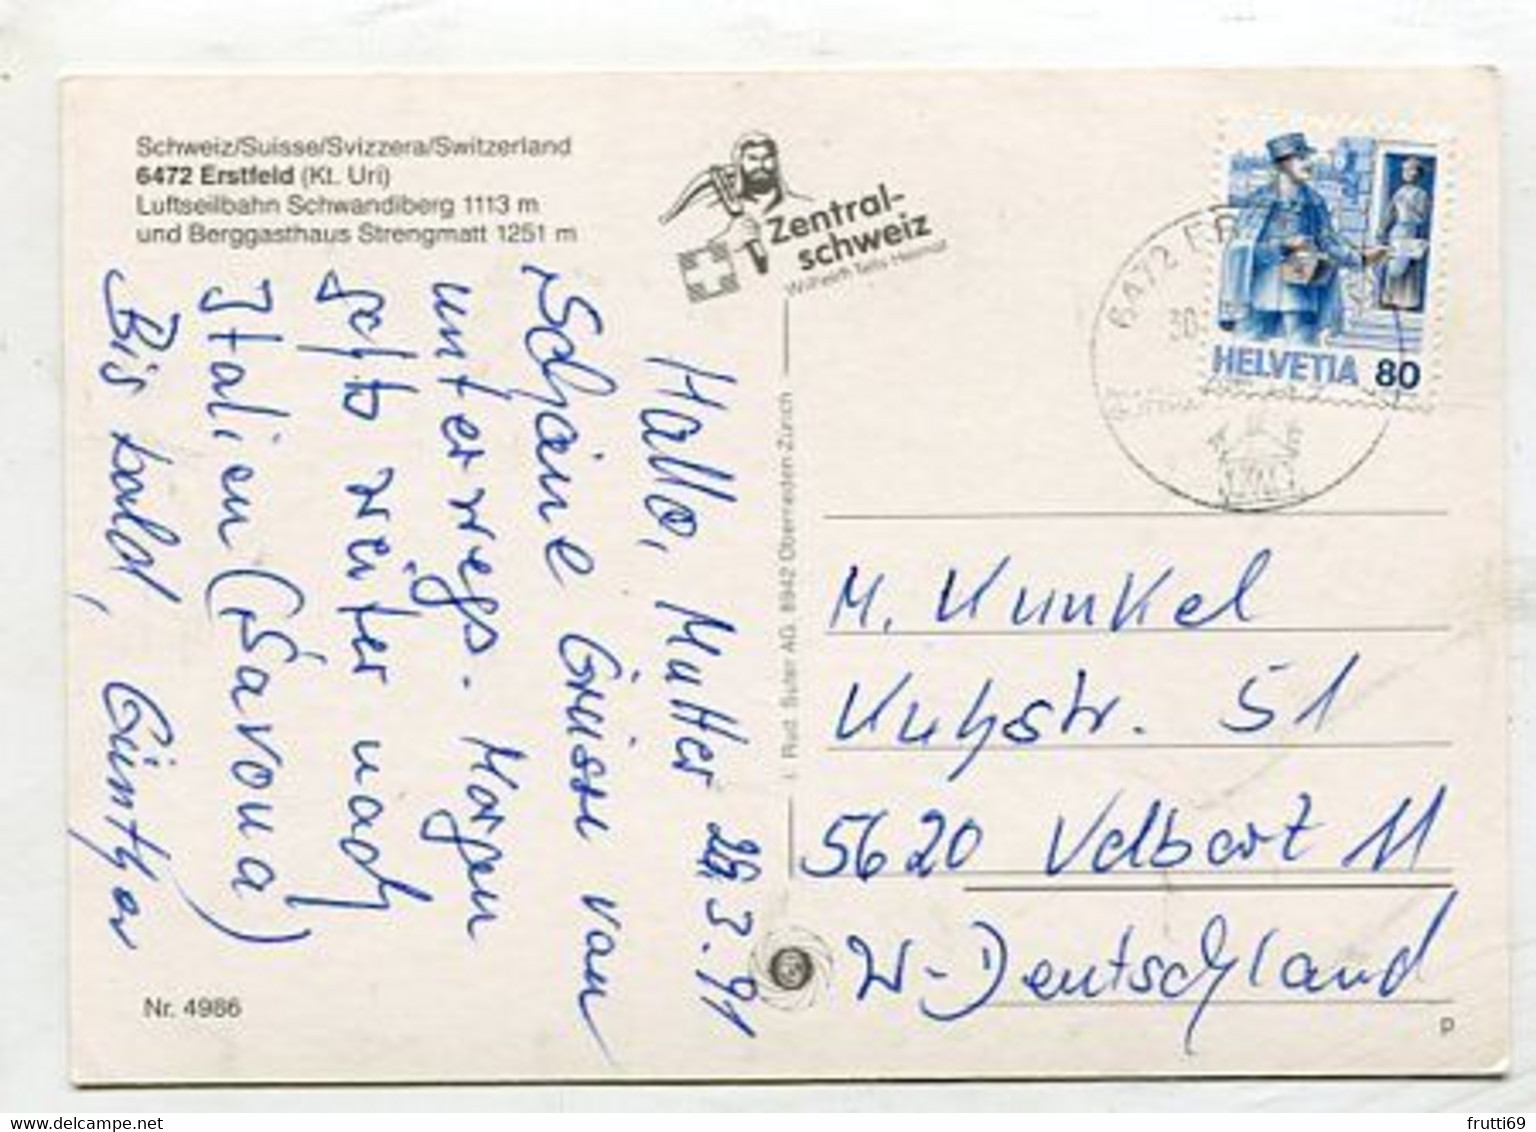 Schweiz/Suisse/Svizzera/Switzerland
6472 Erstfeld (Kt. Uri)
Luftseilbahn Schwandiberg 1113 m
und Berggasthaus Strengmatt 1251 m
Zentral-
schweiz
Wilhelm Tells Heimat
6472 ER
30.
HELVETIA 80
Hallo, Mutter 29.3.91
Schöne Grüsse von
unterwegs. Morgen
geht's weiter nach
Italien (Savona)
Bis bald, Günther
i. Rud. Suter AG, 8942 Oberrieden-Zürich
M. Kunkel
Kuhstr. 51
5620 Velbert 11
W-Deutschland
Nr. 4986
p
delcampe.net
frutti69